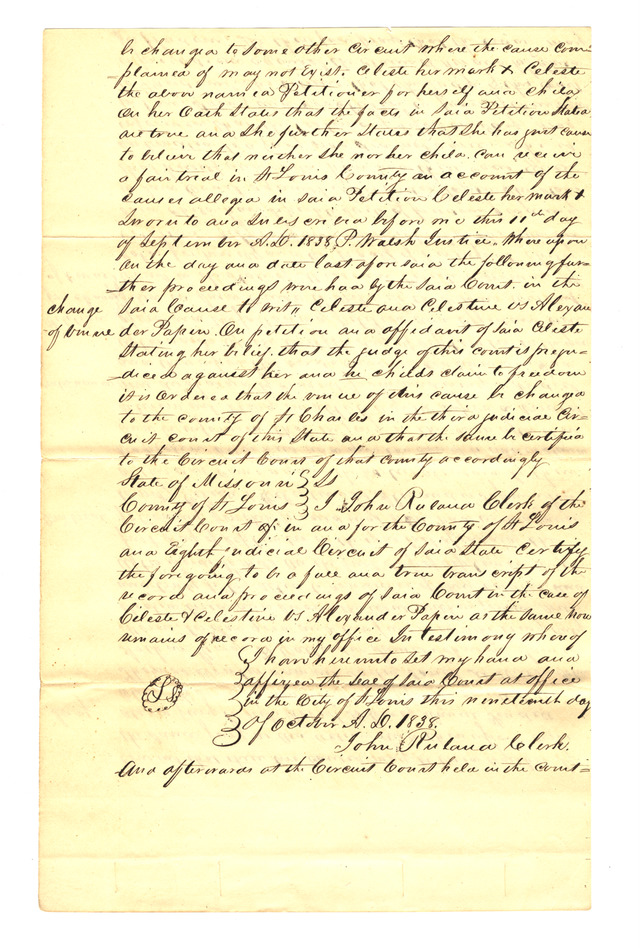 be changed to some other circuit where the cause com-
plained of may not exist. Celeste her mark + Celeste
the above named Petitioner for herself and child
on her Oath States that the facts in said Petition Stated
are true and she further States that she has just cause
to believe that neither she nor her child can receive
a fair trial in St Louis County on account of the
causes alleged in said Petition Celeste her mark +
Sworn to and Subscribed before me this 11th day
of September A.D. 1838. P. Walsh Justice. Whereupon
on the day and date last aforesaid the following fur-
ther proceedings were had by the said Court in the
said Cause to wit,, Celeste and Celestine vs Alexan
change
of venue
der Papin. On petition and affidavit of said Celeste
Stating her belief that the judge of this court is preju-
diced against her and her childs claim to freedom
it is Ordered that the venue of this cause be changed
to the county of St Charles in the third judicial Cir-
cuit court of this State and that the same be certified
to the Circuit Court of that county accordingly
State of Missouri } Ss
County of St Louis } I John Ruland Clerk of the
Circuit Court of in and for the County of St Louis
and Eighth judicial Circuit of said State certify
the foregoing to be a full and true transcript of the
record and proceedings of said Court in the case of
Celeste & Celestine vs Alexander Papin as the same now
remains of record in my office In testimony whereof
I have hereunto set my hand and
affixed the seal of said Court at office
in the City of St Louis this nineteenth day
of October A.D. 1838.
John Ruland Clerk.
And afterwards at the Circuit Court held in the Count=